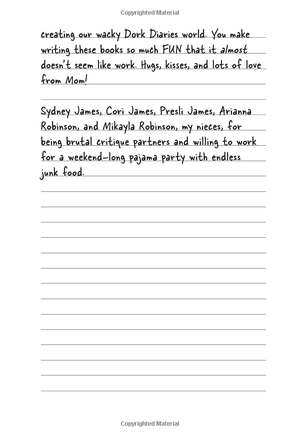 Copyrighted Material
creating our wacky Dork Diaries world. You make
writing these books so much FUN that it almost
doesn't seem like work. Hugs, kisses, and lots of love
from Mom!
Sydney James, Cori James, Presli James, Arianna
Robinson, and Mikayla Robinson, my nieces, for
being brutal critique partners and willing to work
for a weekend-long pajama party with endless
junk food.
Copyrighted Material